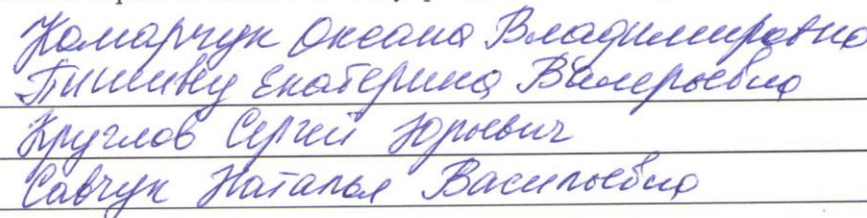 Комарчук Оксана Владимировна
Екатерина Валерьевна
Круглов Сергей Юрьевич
Савчук Наталья Васильевна